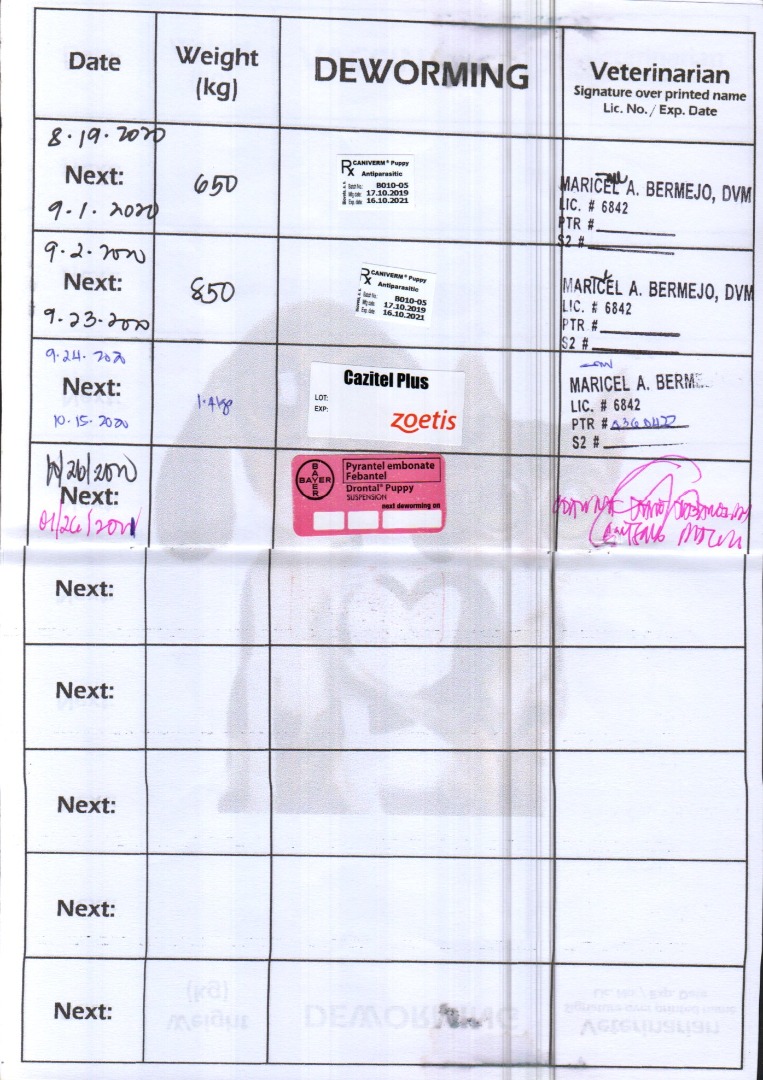 Date
Weight
(kg)
DEWORMING
Veterinarian
Signature over printed name
Lic. No. / Exp. Date
8.19.2020
Next:
9.1.2020
650
Rx CANIVERM® Puppy
Antiparasitic
Batch No.: B010-05
Mfg date: 17.10.2019
Exp. date: 16.10.2021
MARICEL A. BERMEJO, DVM
LIC. # 6842
PTR #
S2 #
9.2.2020
Next:
9.23.2020
850
Rx CANIVERM® Puppy
Antiparasitic
Batch No.: B010-05
Mfg date: 17.10.2019
Exp. date: 16.10.2021
MARICEL A. BERMEJO, DVM
LIC. # 6842
PTR #
S2 #
9.24.2020
Next:
10.15.2020
1.4kg
Cazitel Plus
LOT:
EXP:
zoetis
MARICEL A. BERME
LIC. # 6842
PTR #
S2 #
10/26/2020
Next:
01/26/2021
BAYER
BAYER
Pyrantel embonate
Febantel
Drontal® Puppy
SUSPENSION
next deworming on
Next:
Next:
Next:
Next:
Next: